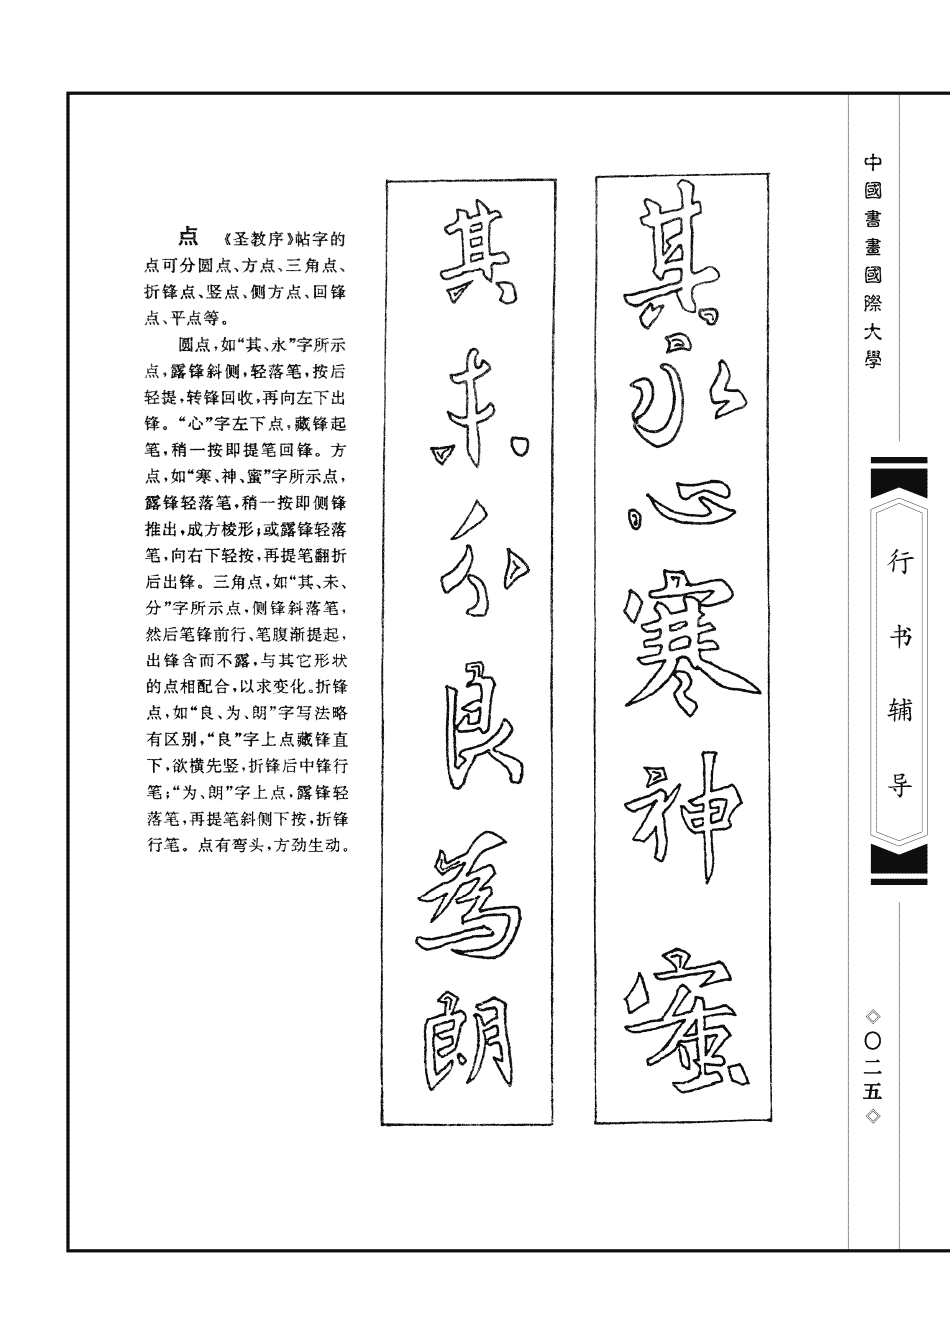 点 《圣教序》帖字的
点可分圆点、方点、三角点、
折锋点、竖点、侧方点、回锋
点、平点等。
圆点，如“其、永”字所示
点，露锋斜侧，轻落笔，按后
轻提，转锋回收，再向左下出
锋。“心”字左下点，藏锋起
笔，稍一按即提笔回锋。方
点，如“寒、神、蜜”字所示点，
露锋轻落笔，稍一按即侧锋
推出，成方棱形；或露锋轻落
笔，向右下轻按，再提笔翻折
后出锋。三角点，如“其、未、
分”字所示点，侧锋斜落笔，
然后笔锋前行、笔腹渐提起，
出锋含而不露，与其它形状
的点相配合，以求变化。折锋
点，如“良、为、朗”字写法略
有区别，“良”字上点藏锋直
下，欲横先竖，折锋后中锋行
笔；“为、朗”字上点，露锋轻
落笔，再提笔斜侧下按，折锋
行笔。点有弯头，方劲生动。
其永心寒神蜜
其未分良為朗
中國書畫國際大學
行书辅导
◇〇二五◇